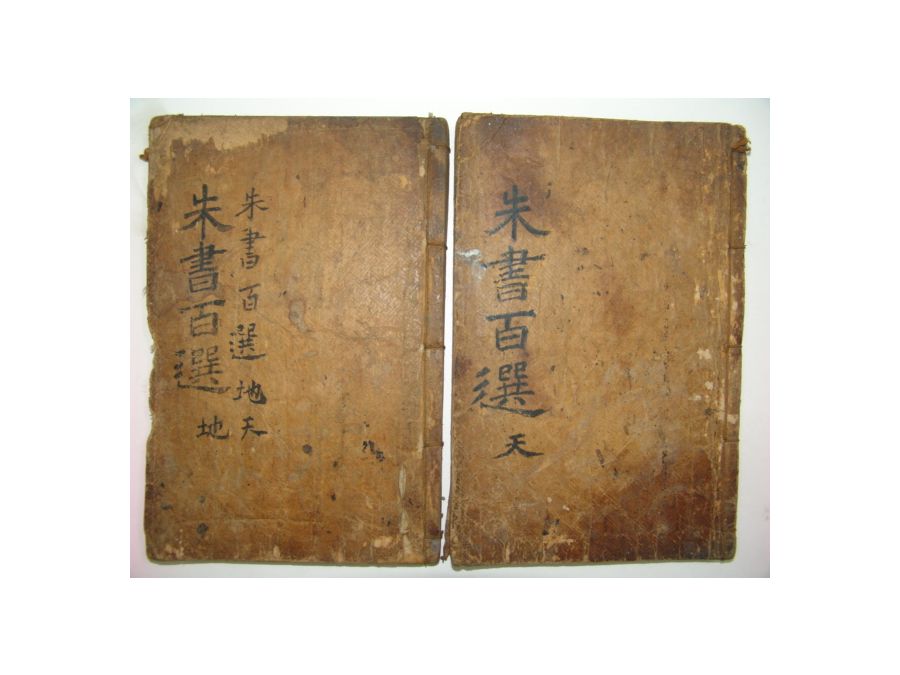 朱書百選 天
朱書百選 地天
朱書百選
地